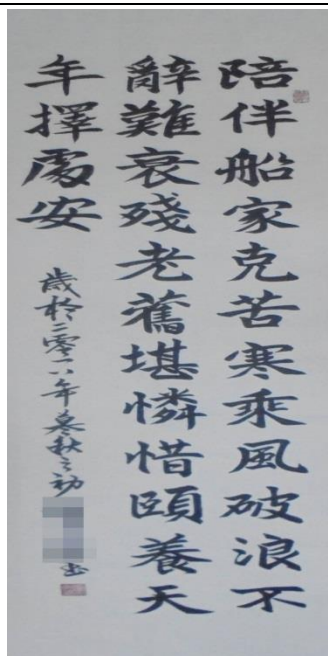 陪伴船家克苦寒乘風破浪不
辭難衰殘老舊堪憐惜頤養天
年擇處安
歲於二零一八年暮秋之初
書